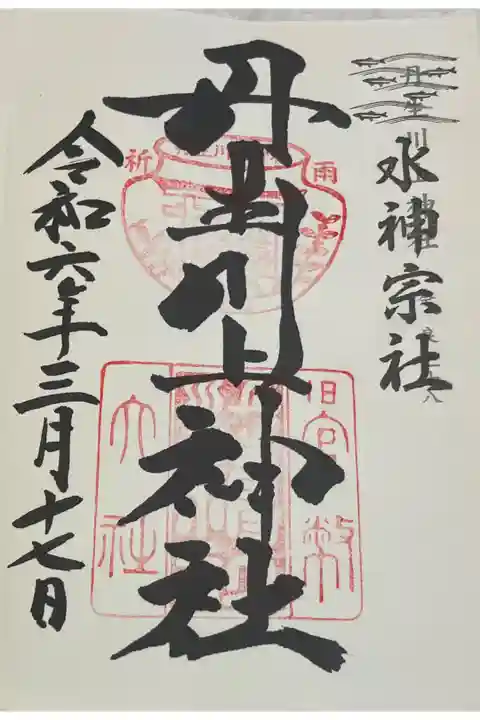 水神宗社
丹生川上神社
雨
祈
旧官幣
大社
令和六年三月十七日